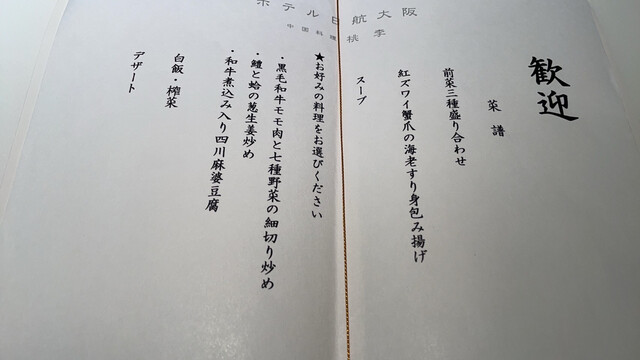 ホテル日航大阪
中国料理 桃李
歓迎
菜譜
前菜三種盛り合わせ
紅ズワイ蟹爪の海老すり身包み揚げ
スープ
★お好みの料理をお選びください
・黒毛和牛モモ肉と七種野菜の細切り炒め
・鱧と蛤の葱生姜炒め
・和牛煮込み入り四川麻婆豆腐
白飯・搾菜
デザート